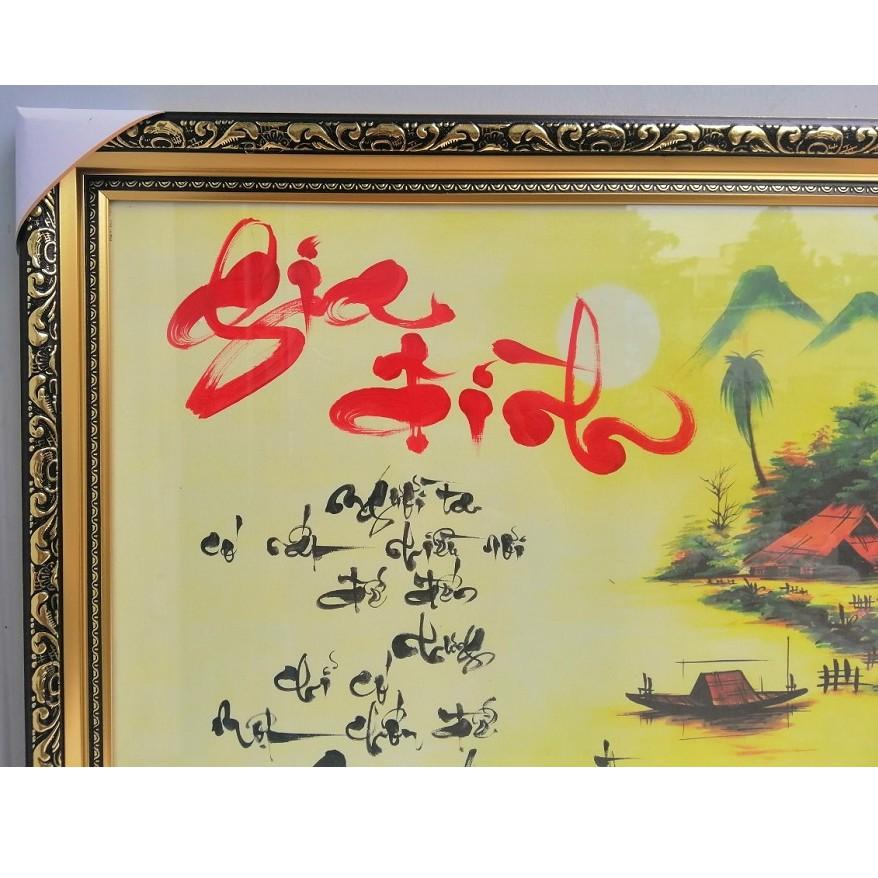 Gia
đình
Người ta
có rất nhiều nơi
để đến
nhưng
chỉ có
một chốn để